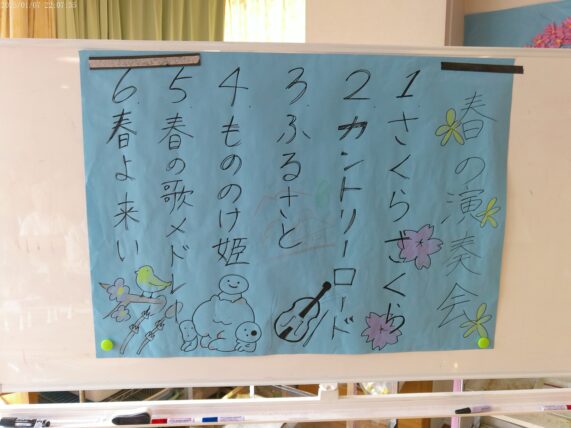 2025/01/07 22:07:35
春の演奏会
1.さくらさくら
2.カントリーロード
3.ふるさと
4.もののけ姫
5.春の歌メドレー
6.春よ来い